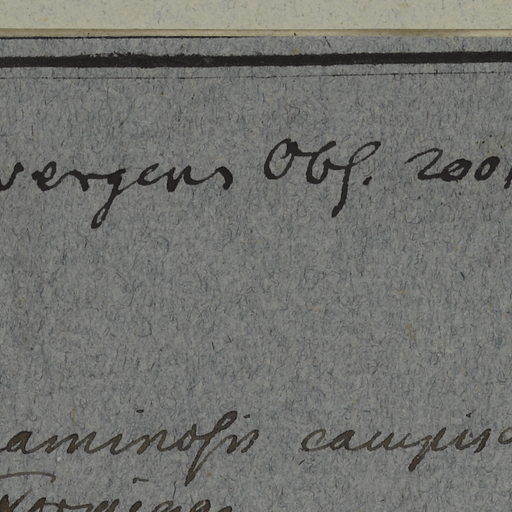 vergens Obſ. 200
aminoſis campis